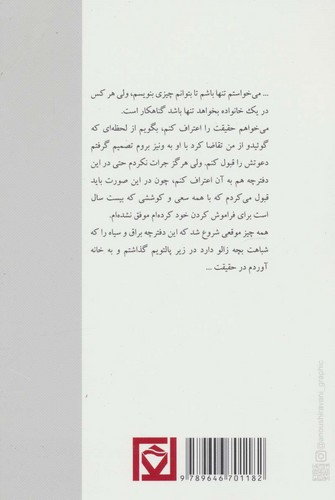 ... می‌خواستم تنها باشم تا بتوانم چیزی بنویسم، ولی هر کس
در یک خانواده بخواهد تنها باشد گناهکار است.
می‌خواهم حقیقت را اعتراف کنم، بگویم از لحظه‌ای که
گوئیدو از من تقاضا کرد با او به ونیز بروم تصمیم گرفتم
دعوتش را قبول کنم. ولی هرگز جرات نکردم حتی در این
دفترچه هم به آن اعتراف کنم، چون در این صورت باید
قبول می‌کردم که با همه سعی و کوششی که بیست سال
است برای فراموش کردن خود کرده‌ام موفق نشده‌ام.
همه چیز موقعی شروع شد که این دفترچه براق و سیاه را که
شباهت بچه زالو دارد در زیر پالتویم گذاشتم و به خانه
آوردم در حقیقت ...
9 789646 701182